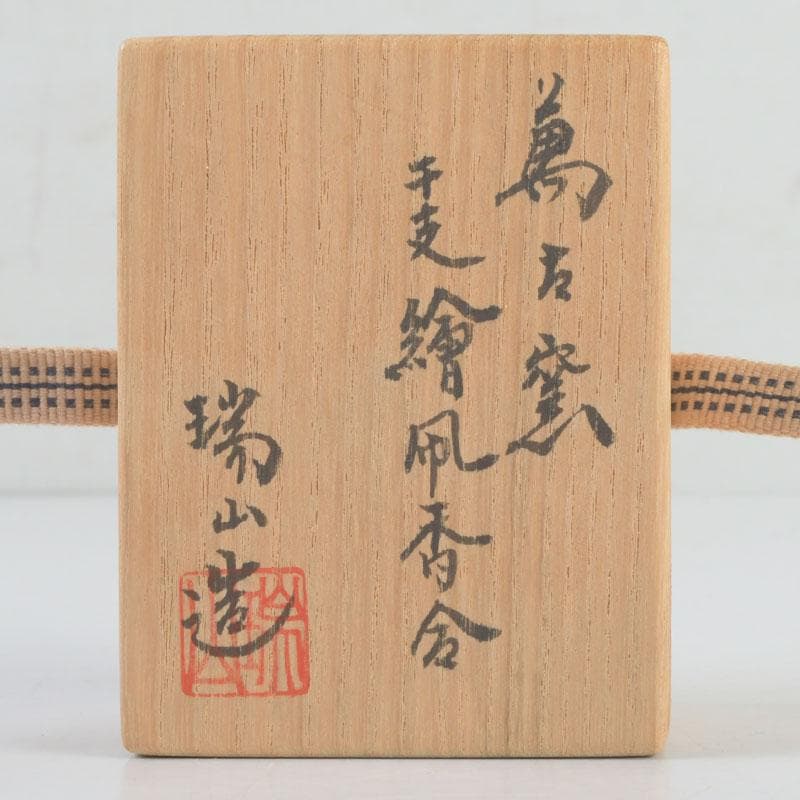 萬古窯
干支繪凧香合
瑞山造